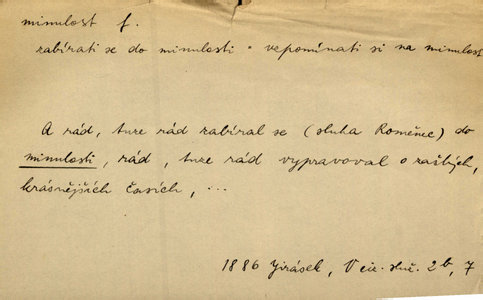 minulost f.
zabírati se do minulosti = vzpomínati si na minulost
A rád, tuze rád zabíral se (sluha Roměnec) do
minulosti, rád, tuze rád vypravoval o zašlých,
krásnějších časích, ...
1886 Jirásek, V ciz. služ. 2b, 7